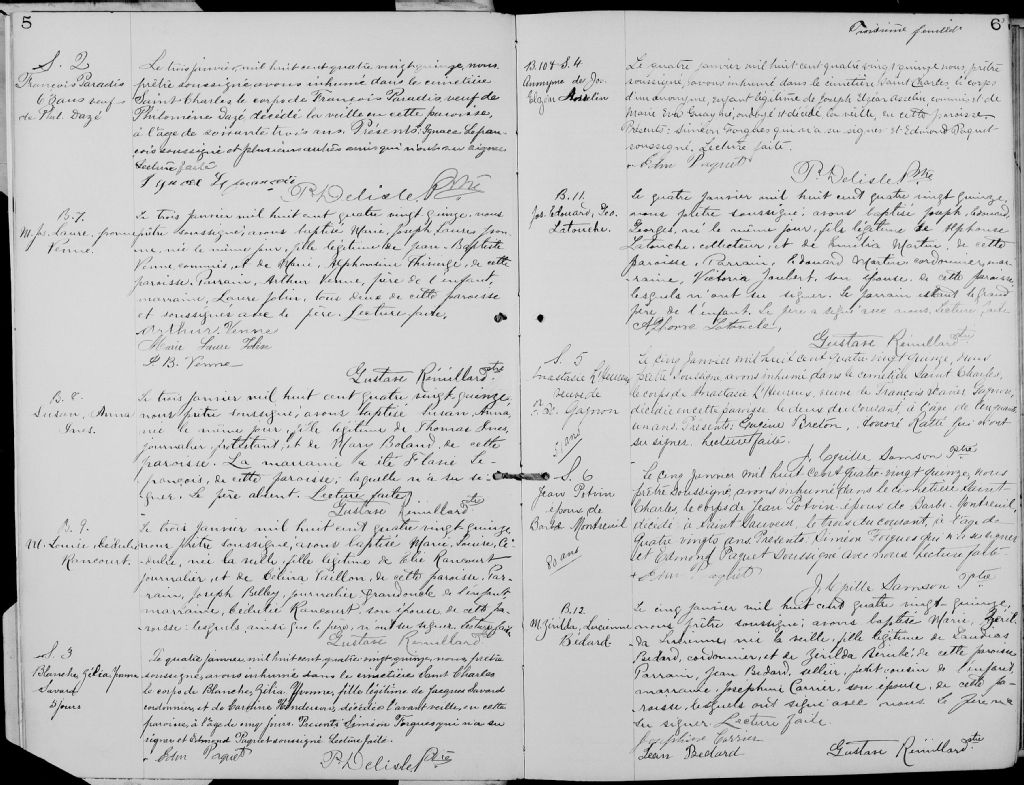 5
S. 2
François Paradis
63 ans veuf
de Phil. Dazé
Le trois janvier, mil huit cent quatre vingt quinze, nous,
prêtre soussigné avons inhumé dans le cimetière
Saint Charles le corps de François Paradis, veuf de
Philomène Dazé décédé la veille en cette paroisse,
à l'âge de soixante trois ans. Présents: Ignace Lefran-
çois soussigné et plusieurs autres amis qui n'ont su signer
Lecture faite
Ignace Lefrançois
P. Delisle Ptre
B. 7.
M. Js. Laure, Yvonne
Venne.
Le trois janvier mil huit cent quatre vingt quinze, nous
prêtre soussigné, avons baptisé Marie, Joseph, Laure, Yvon-
ne, née le même jour, fille légitime de Jean-Baptiste
Venne commis, et de Marie, Alphonsine Thivierge, de cette
paroisse. Parrain, Arthur Venne, frère de l'enfant,
marraine, Laure Jolin, tous deux de cette paroisse
et soussignés avec le père. Lecture faite.
Arthur Venne
Marie Laure Jolin
J. B. Venne
Gustave Rémillard ptre
B. 8.
Susan, Anna
Ines.
Le trois janvier mil huit cent quatre vingt quinze,
nous prêtre soussigné, avons baptisé Susan, Anna,
née le même jour, fille légitime de Thomas Ines,
journalier, protestant, et de Mary Boland, de cette
paroisse. La marraine a été Flavie Le-
françois, de cette paroisse, laquelle n'a su si-
gner. Le père absent. Lecture faite.
Gustave Rémillard ptre
B. 9.
M. Louise, Cédulie
Rancourt.
Le trois janvier mil huit cent quatre vingt quinze,
nous prêtre soussigné, avons baptisé Marie, Louise, Cé-
dulie, née la veille, fille légitime de Elie Rancourt
journalier et de Célina Vaillon, de cette paroisse. Par-
rain, Joseph journalier, grand oncle de l'enfant
marraine, Cédulie Rancourt, son épouse, de cette pa-
roisse: lesquels, ainsi que le père, n'ont su signer. Lecture faite
Gustave Rémillard ptre
S. 3
Blanche, Zélia, Yvonne
Savard
5 jours
Le quatre janvier mil huit cent quatre vingt quinze, nous, prêtre
soussigné, avons inhumé dans le cimetière Saint Charles
le corps de Blanche, Zélia, Yvonne, fille légitime de Jacques Savard
cordonnier, et de Caroline décédée l'avant veille, en cette
paroisse, à l'âge de cinq jours. Présents Siméon Gorgues qui n'a su
signer et Edmond Paquet soussigné Lecture faite.
Edm Paquet
P. Delisle Ptre
6
Troisième feuillet
B. 10 & S. 4
Anonyme de Jos.
Elzéar Asselin
Le quatre janvier mil huit cent quatre vingt quinze, nous prêtre
soussigné, avons inhumé dans le cimetière Saint Charles, le corps
d'un anonyme, enfant légitime de Joseph Elzéar Asselin commis et de
Marie ondoyé et décédé la veille, en cette paroisse.
Présents: Siméon Gorgues qui n'a su signer et Edmond Paquet
soussigné. Lecture faite.
Edm Paquet
P. Delisle Ptre
B. 11.
Jos. Edouard, Geo.
Latouche.
Le quatre janvier mil huit cent quatre vingt quinze,
nous prêtre soussigné, avons baptisé Joseph, Edouard,
Georges, né le même jour, fils légitime de Alphonse
Latouche, collecteur, et de Emélia Martin, de cette
paroisse. Parrain, Edouard Martin cordonnier, mar-
raine, Victoria Joubert, son épouse, de cette paroisse,
lesquels n'ont su signer. Le parrain étant le grand
père de l'enfant. Le père a signé avec nous. Lecture faite
Alphonse Latouche,
Gustave Rémillard ptre
S. 5
Anastasie L'Heureux
veuve de
F. X. Gagnon
ans
Le cinq janvier mil huit cent quatre vingt quinze, nous
prêtre soussigné, avons inhumé dans le cimetière Saint Charles,
le corps de Anastasie L'Heureux, veuve de François Xavier Gagnon,
décédée en cette paroisse le deux du courant, à l'âge de
un ans. Présents: Eugène Breton, Honoré Ratté qui n'ont
su signer. Lecture faite.
J. Opille Samson Ptre
S. 6
Jean Potvin
époux de
Barbe Montreuil
80 ans
Le cinq janvier mil huit cent quatre-vingt quinze, nous
prêtre soussigné, avons inhumé dans le cimetière Saint-
Charles, le corps de Jean Potvin époux de Barbe Montreuil,
décédé à Saint Sauveur, le trois du courant, à l'âge de
quatre vingts ans. Présents Siméon Gorgues qui n'a su signer
et Edmond Paquet soussigné avec nous Lecture faite
Edm Paquet
J. Opille Samson Ptre
B. 12.
M. Zérilda, Lucienne
Bédard
Le cinq janvier mil huit cent quatre vingt quinze,
nous prêtre soussigné, avons baptisé Marie, Zéril-
da Lucienne, née la veille, fille légitime de
Bédard, cordonnier, et de Zérilda Bérubé, de cette paroisse
Parrain, Jean Bédard, sellier, petit cousin de l'enfant,
marraine, Josephine Carrier, son épouse, de cette pa-
roisse, lesquels ont signé avec nous. Le père n'a
su signer. Lecture faite.
Josephine Carrier
Jean Bédard
Gustave Rémillard ptre